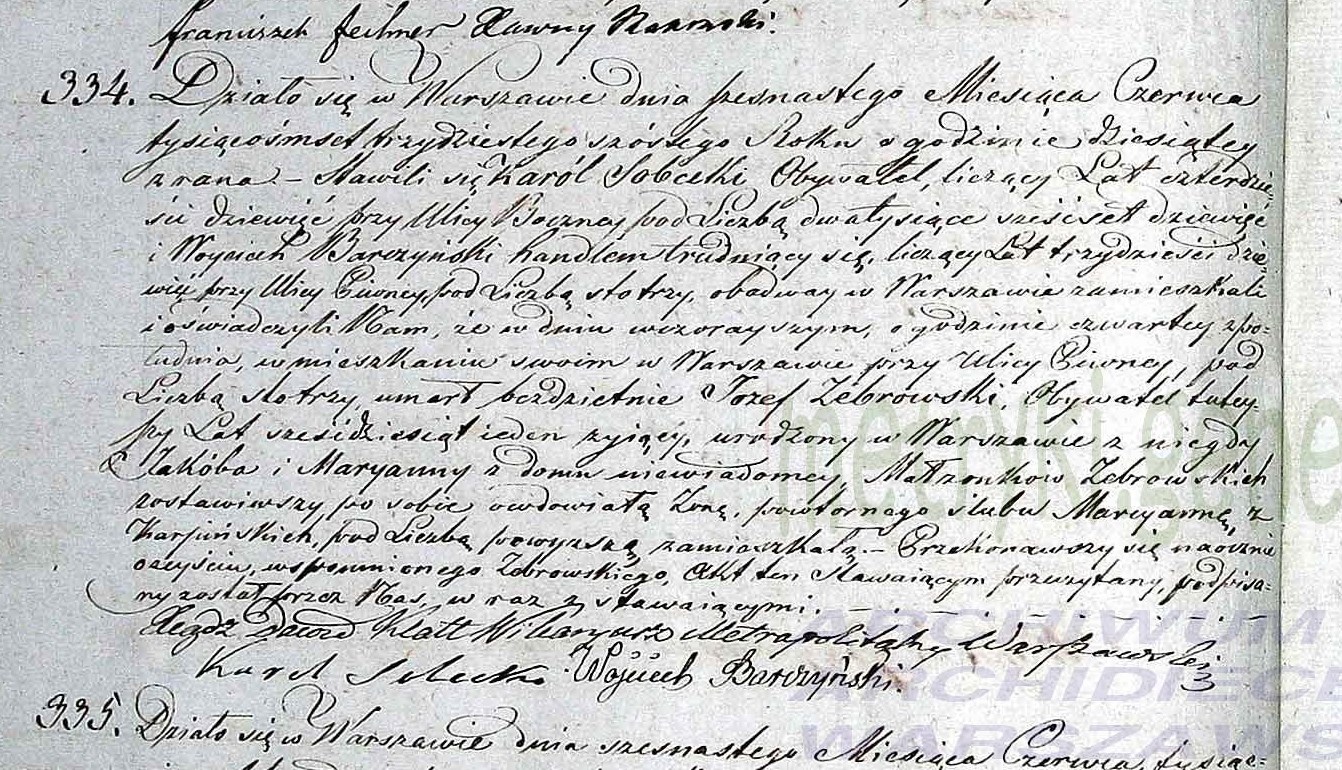 Franciszek Feilner Sławny
334. Działo się w Warszawie dnia szesnastego Miesiąca Czerwca
tysiącośmset trzydziestego szóstego Roku o godzinie Dziesiątey
z rana. – Stawili się Karól Sobecki Obywatel, liczący Lat czterdzie=
ści dziewięć przy Ulicy Boczney pod Liczbą dwatysiące sześćset dziewięć
i Woyciech Barczyński handlem trudniący się, liczący Lat trzydzieści dzie=
więć przy Ulicy Piwney pod Liczbą sto trzy, obadway w Warszawie zamieszkali
i oświadczyli Nam, że w dniu wczorayszym, o godzinie czwartey z po=
łudnia, w mieszkaniu swoim w Warszawie przy Ulicy Piwney, pod
Liczbą sto trzy, umarł bezdzietnie Jozef Zebrowski, Obywatel tutey=
szy Lat sześćdziesiąt ieden żyiący, urodzony w Warszawie z niegdy
Jakóba i Maryanny z domu niewiadomey, Małżonków Zebrowskich
zostawiwszy po sobie owdowiałą Żonę, powtórnego ślubu Maryannę, z
Karpińskich, pod Liczbą powyższą zamieszkałą. – Przekonawszy się naocznie
o zeyściu, wspomnionego Zebrowskiego, Akt ten Stawaiącym przeczytany, podpisa=
ny został przez Nas, w raz z stawaiącymi.
Xiądz Dawid Klatt Wikaryusz Metropolitalny Warszawski
Karol Wojciech Barczyński.
335. Działo się w Warszawie dnia szesnastego Miesiąca Czerwca tysiąc=
metryki.gene
ARCHIWUM
ARCHIDIECE
WARSZAWS